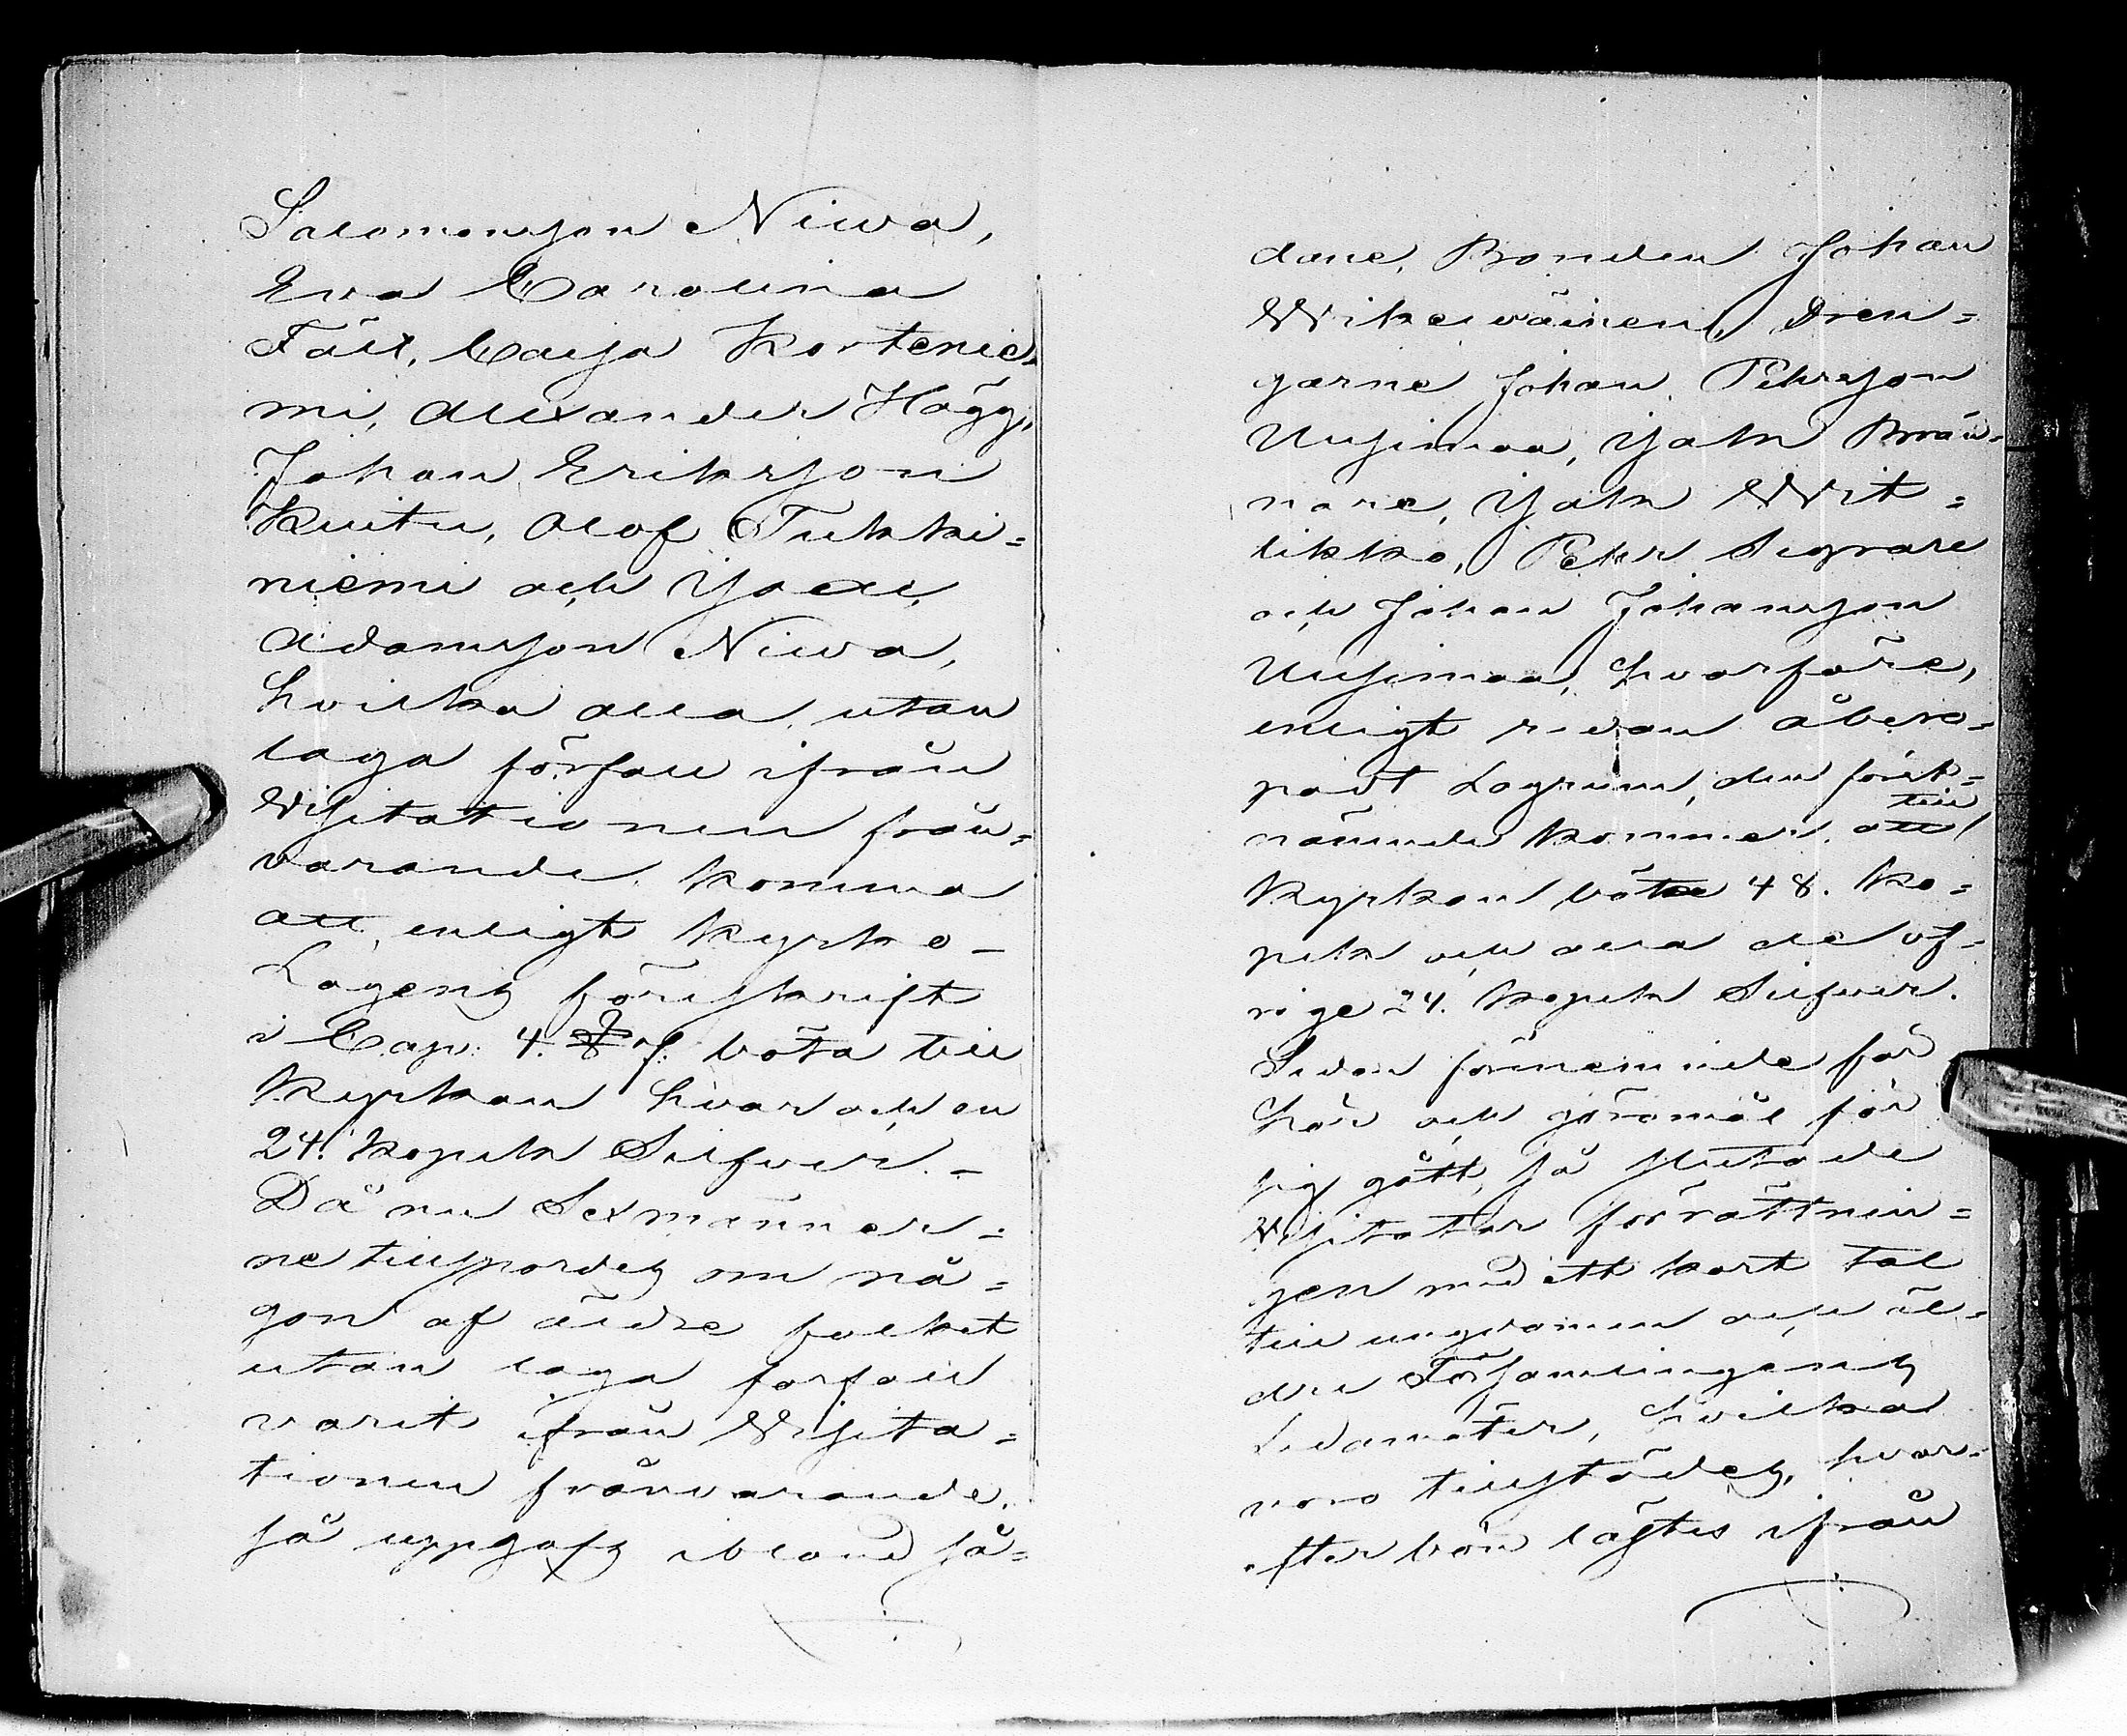 Salomonsson Niwa,
Eva Carolina
Fält, Caisa Kortenie-
mi, Alexander Hägg,
Johan Eriksson
Kuitu, Olof Tukki=
niemi och Joel
Adamsson Niwa,
hvilka alla, utan
laga förfall ifrån
Visitationen från=
varande, komma
att, enligt Kyrko-
Lagens föreskrift
i Cap: 4. § böta till
Kyrkan hvar och en
24. Kopek Silfver. -
Då nu Sexmänner=
ne tillspordes om nå=
gon af äldre folket
utan laga förfall
varit ifrån Visita=
tionen frånvarande,
så uppgafs ibland så=
dane, Bonden Johan
Wikeväinen, Dren=
garne Johan Pehrsson
Uusimaa, Isak Brän=
nare, Isak Wit=
likko, Pehr Segrare
och Johan Johansson
Uusimaa, hvarföre,
enligt redan åbero=
padt Lagrum, den först=
nämnde kommer att till
Kyrkan böta 48. Ko=
pek och alla de öf=
rige 24. Kopek Silfver.
Sedan förenemnde för
hör och göromål för
sig gått, så slutade
Visitator förrättnin=
gen med ett kort tal
till ungdomen och äl=
dre Församlingens
Ledamöter, hvilka
voro tillstädes, hvar=
efter bön lästes ifrån